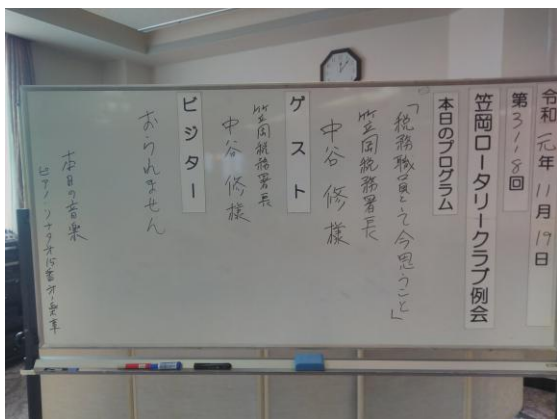 令和元年11月19日
第3118回
笠岡ロータリークラブ例会
本日のプログラム
「税務職員として今思うこと」
笠岡税務署長
中谷 修様
ゲスト
笠岡税務署長
中谷 修様
ビジター
おられません
本日の音楽
ピアノソナタ才15番才一楽章